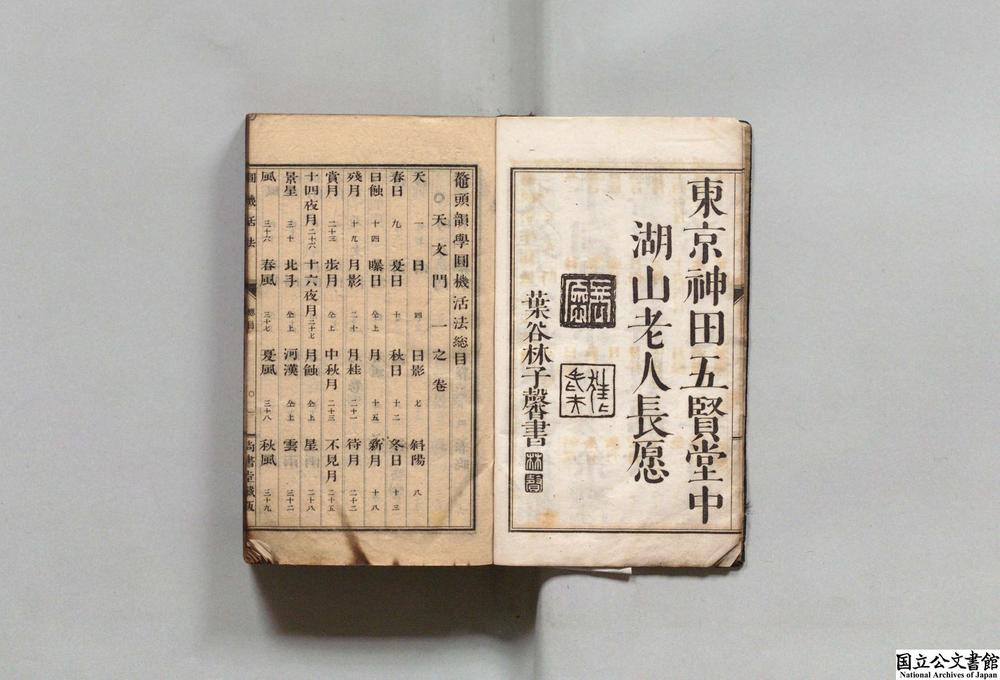 東京神田五賢堂中
湖山老人長愿
葉谷林子馨書
鼇頭韻學圓機活法総目
○天文門 一之卷
天 一 日 四 日影 七 斜陽 八
春日 九 夏日 十 秋日 十二 冬日 十三
日蝕 十四 曝日 仝上 月 十五 新月 十八
殘月 十九 月影 二十 月桂 二十一 待月 二十二
賞月 二十三 歩月 仝上 中秋月 二十三 不見月 二十五
十四夜月 二十六 十六夜月 二十七 月蝕 仝上 星 二十八
景星 三十 北斗 仝上 河漢 仝上 雲 三十二
風 三十六 春風 三十七 夏風 三十八 秋風 三十九
圓機活法 總目 ○一 尚書堂藏版
国立公文書館
National Archives of Japan